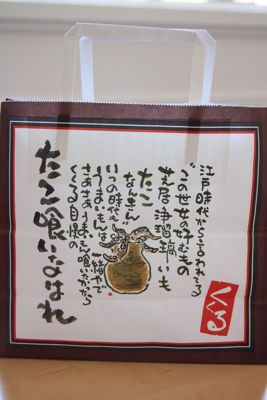 江戸時代から言われてる
“この世女の好むもの
芝居 浄瑠璃 いも
たこ
なんきん
いつの時代も
うまいもんは一緒やで
さあさあ、うまいもん喰いたかったら
くくる自慢の
たこ喰いなはれ
くくる